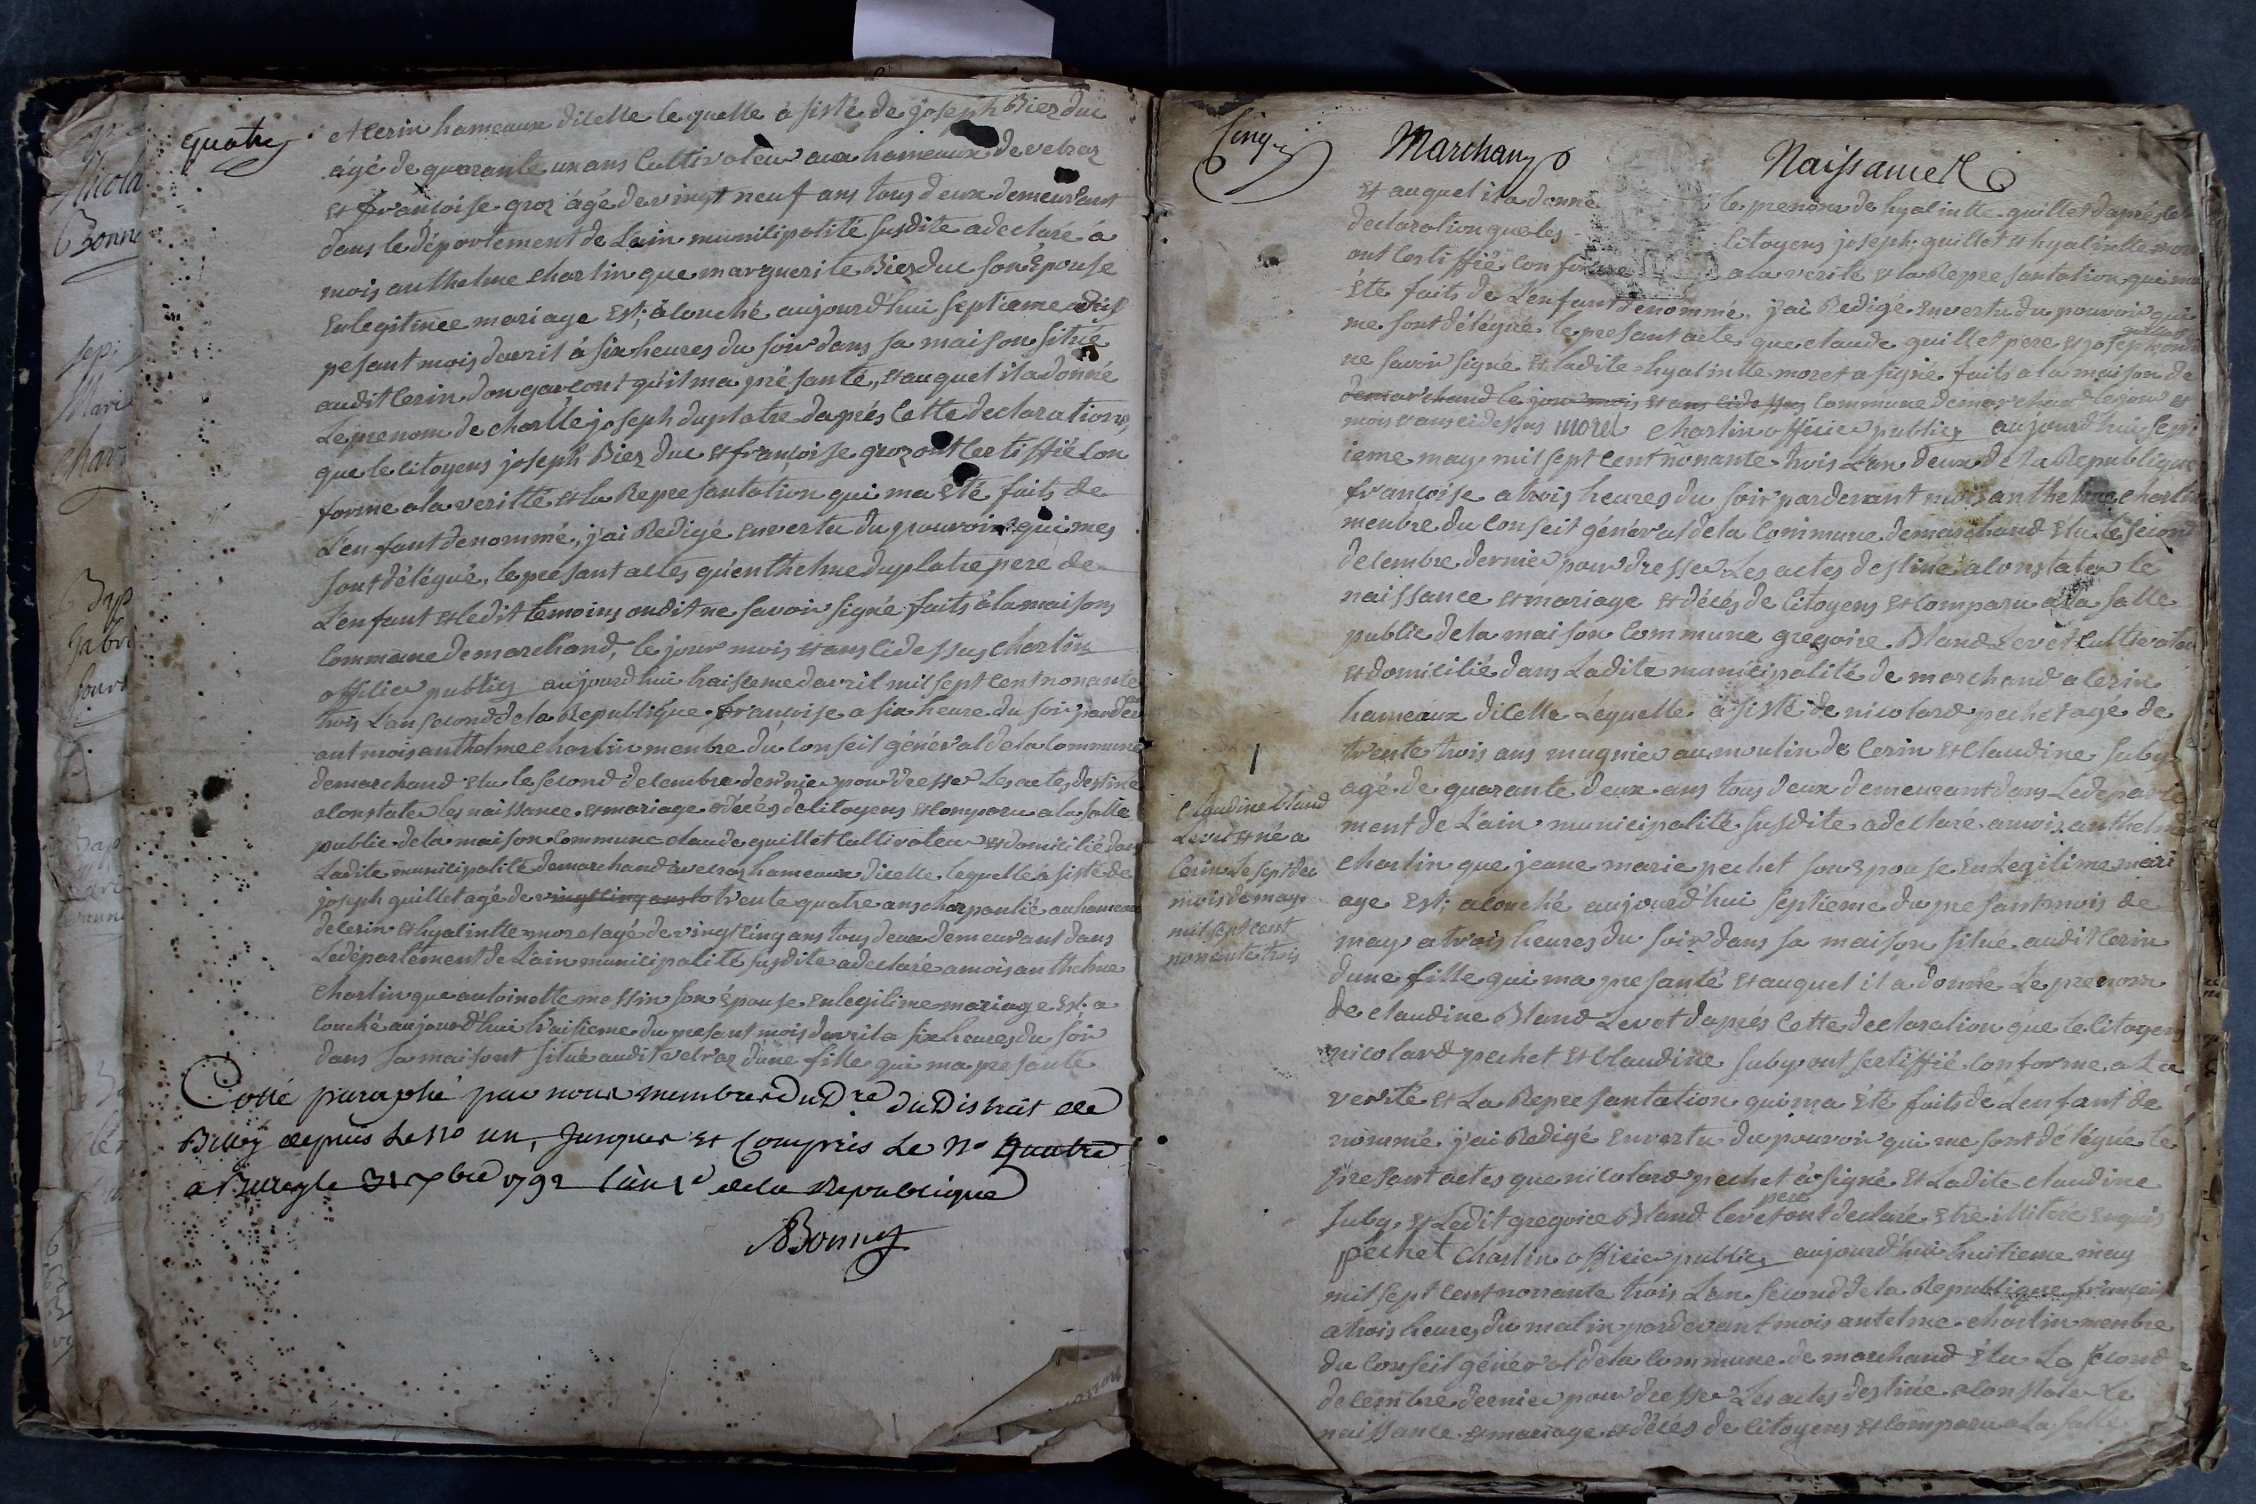 quatre
et lerin hameaux dicelle le quelle à sisté de joseph Biez duc
âgé de quarante un ans Cultivateur aux hameaux de velraz
et françoise groz âgé de vingt neuf ans tous deux demeurant
dans le département de Lain municipalité susdite a declaré à
mois anthelme charlin que marguerite Biez duc son Epouse
En legitimee mariage Est, àlouché aujourd'hui septieme
pesant mois davril à six heures du soir dans sa maison situé
audit lerin don garcont qu'il ma présanté, et auquel il a donné
Le prenom de charlle joseph duplatre daprés Cette declaration,
que le citoyens joseph Biez duc et françoise groz ont Certiffié Con
forme a la verilté et la Represantation qui ma Eté faits de
L'enfant denommé, j'ai Redigé en vertu du pouvoir qui mes
sont délégué, le presant actes qu'enthelme duplatre pere de
L'enfant et ledit temoins ondit ne savoir signé faits à la maisons
Commune de marchand, le jour mois et ans cidessus charlin
officier publiq aujourdhui traisieme davril mil sept cent nonante
trois L'an second de la Republique françoise a six heure du soir pardev
ant mois anthelme charlin menbre du Conseil général de la Commune
de marchand Elu le second decembre dernier pour dresser Les actes destiné
a Constater les naissance et mariage et décés de citoyens et Comparu a la salle
public de la maison Commune claude quillet Cultivateur et domicilié dans
Ladite municipalité de marchand a velraz hameaux dicelle lequelle à sisté de
joseph quillet agé de vingt cinq ans to trente quatre ans charpantié au hameaux
de lerin et hyalintte moret agé de vingt cinq ans tous deux demeurant dans
Le département de Lain municipalité susdite a declaré a mois anthelme
charlin que antoinette messin son épouse en legitime mariage Est a
Couché aujourd'hui traisieme du presant mois davril a six heures du soir
dans sa maisont situé audit velraz d'une fille qui ma presanté
Cotté paraphé par nous membre du D.re du District de
Billey depuis Le no un, Jusques et Compris Le No quatre
a Billey le 31 xbre 1792 l'an 1er de la Republique
Bonnet
Cinq
Marchand Naissance
et auquel il a donné le prenom de hyalintte quillet daprés
declaration que les citoyens joseph quillet et hyalintte moret
ont Certiffié Conforme a la verité et la Represantation qui ma
été faits de L'enfant denommé, j'ai Redigé en vertu du pouvoir qui
me sont délégué le presant acte que claude quillet pere et joseph quillet ondit
ne savoir signé et ladite hyalintte moret a signé faits a la maison de
de marchand le jour mois et ans cidessus Commune de marchand le jour et
mois et ans cidessus moret charlin officier publiq aujourd'hui sept
ieme may mil sept cent nonante trois L'an deux de la Republique
françoise a trois heures du soir pardevant mois anthelme charlin
menbre du Conseil général de la Commune de marchand Elu le second
decembre dernier pour dresser Les actes destiné a Constater le
naissance et mariage et décés de citoyens et Comparu a la salle
public de la maison Commune gregoire Bland Levet Cultivateur
et domicilié dans Ladite municipalité de marchand a lerin
hameaux dicelle Lequelle à sisté de nicolard pechet agé de
trente trois ans mugnier au moulin de lerin et Claudine suby
agé de quarante deux ans tous deux demeurant dans Le departe
ment de L'ain municipalité susdite a declaré a mois anthelme
charlin que jeane marie pechet son Epouse En Legitime mari
age Est, alouché aujourd'hui septieme du presant mois de
may a trois heures du soir dans sa maison situé audit lerin
dune fille qui ma presanté et auquel il a donné Le prenom
de claudine Bland Levet daprés Cette declaration que le citoyens
nicolard pechet et Claudine suby ont sertiffié Conforme a La
verité et La Represantation qui ma Eté faits de L'enfant de
nommé j'ai Redigé En vertu du pouvoir qui me sont délégué le
presant actes que nicolard pechet à signé et Ladite claudine
suby et Ledit gregoire Bland levet pere ont declaré Etre illiteré
pechet charlin officier publiq aujourd'hui huitieme may
mil sept cent nonante trois L'an second de la Republique française
a trois heures du matin pardevant mois antelme charlin menbre
du Conseil général de la Commune de marchand Elu Le second
decembre dernier pour dresser Les actes destiné a Constater Le
naissance et mariage et décés de citoyens et Comparu a La salle
Claudine Bland
Levet et né a
lerin Le sept du
mois de may
mil sept cent
nonante trois